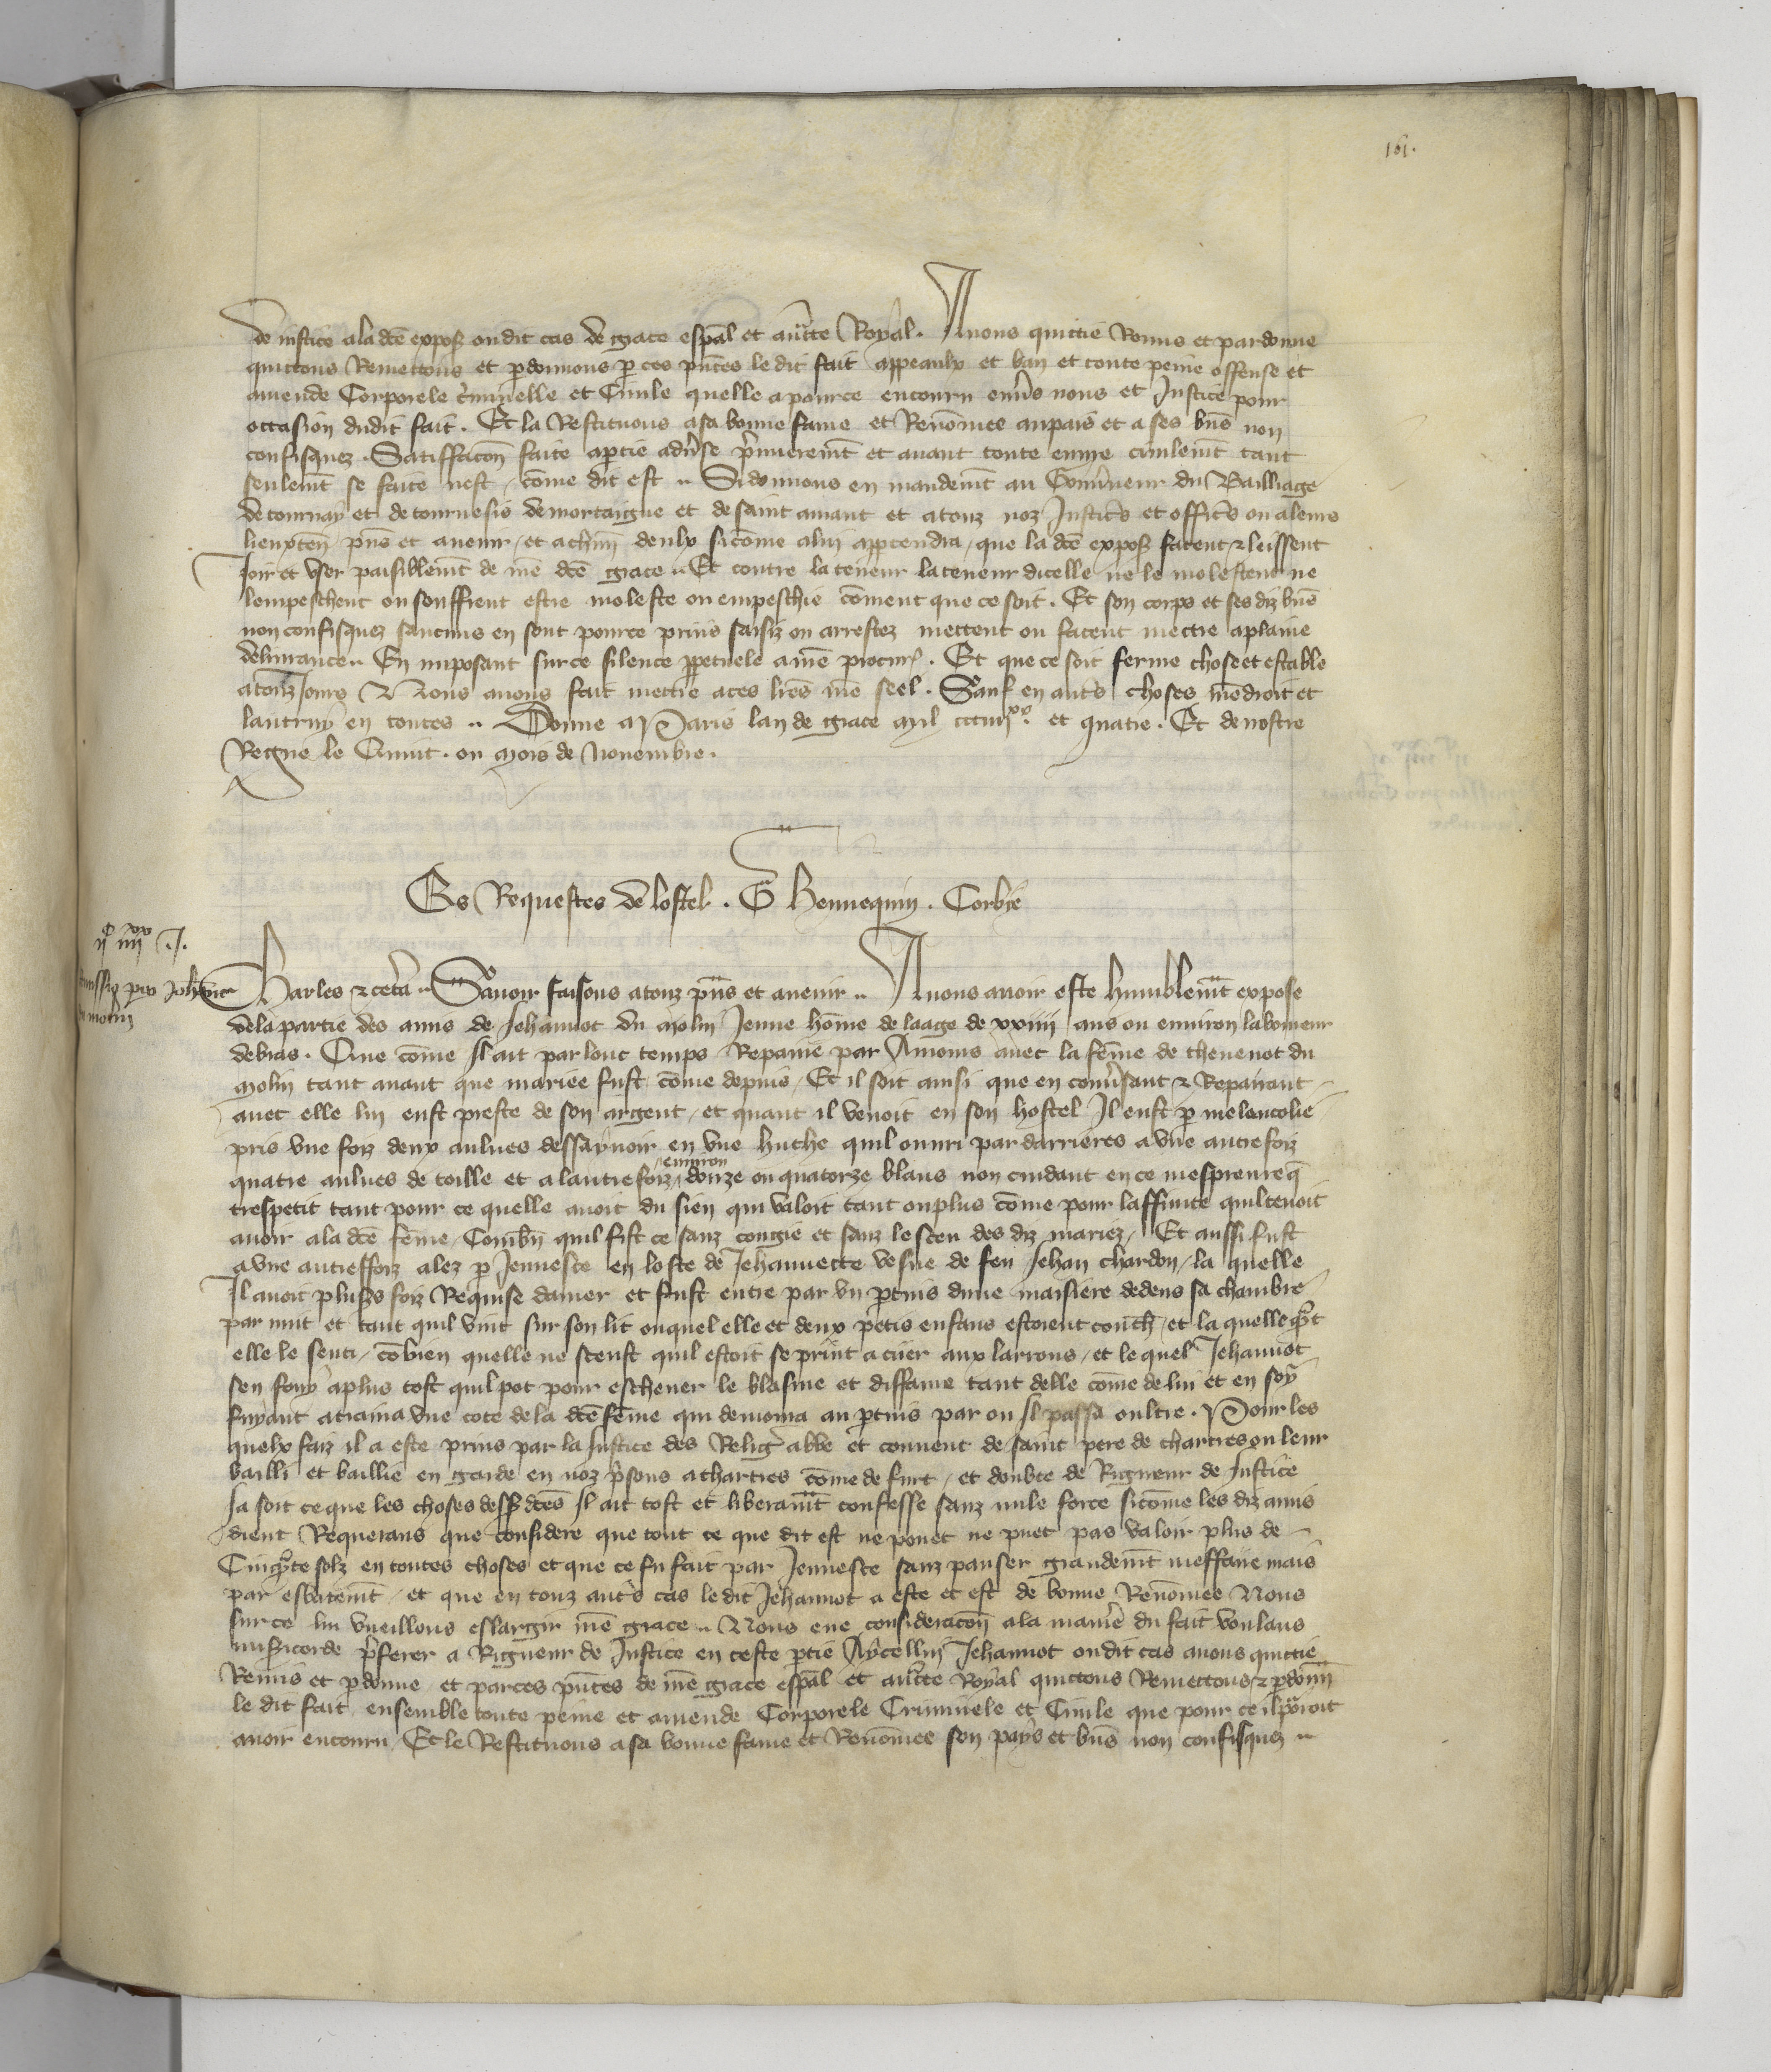 161.
de justice a la dcē expoſ ou dit cas de grace esp̄al et auc̄te Royal. Avons quictié Remis et pardonné
quictons Remettons et p̄donnons p̄ ces p̄ntes le dit fait appeaulx et ban et toute peine offense et
amende Corporele c̄minelle et Civile quelle a pource encouru env̄s nous et Justice pour
occasion dudit fait. Et la Restituons a sa bonne fame et Renōmee au pais et a ses bn̄s non
confisquez. Satiffac̄on faite a p̄tie adv̄se p̄miereint et avant toute euvre civileīnt tant
seuleīnt se faite nest / cōme dit est .. Si donnons en mandeīnt au Gouv̄neur du Bailliage
de tournay et de tournesis de mortaigne et de saint amant et a touz noz Justic̄s et offic̄s ou a leurs
lieuxten̄ p̄ns et avenir / et a ch̄un deulx si cōme a lui appartendra / que la dcē expoſ facent & leissent
Joir et user paisibleīnt de n̄re dcē grace .. Et contre la teneur la teneur dicelle ne le molestent ne
lempeschent ou souffrent estre molesté ou empeschié cōment que ce soit. Et son corps et ses diz bn̄s
non confisquez saucuns en sont pource prins saisiz ou arrestez mettent ou facent mectre a plaine
delivrance .. En imposant sur ce silence p̄petuele a n̄re procur̄. Et que ce soit ferme chose et estable
a touz Jours Nous avons fait mettre a ces lr̄es n̄re seel. Sauf en aut̄s choses n̄re droit et
lautruy en toutes .. Donné a Paris lan de grace Mil ccciiijxx. et quatre. Et de nostre
Regne le Quint. ou Mois de Novembre.
Es Requestes de lostel. G Hennequin. Corbie
ijc iiijxx .J.
Remissio pro Joh̄nne
du molin
Charles & cetera .. Savoir faisons a touz p̄ns et avenir .. Nous avoir esté humbleīnt exposé
de la partie des amis de Jehannot du Molin Jeune hōme de laage de xxiiij ans ou environ laboureur
de bras. Que cōme Il ait par lonc temps Repairié par Amours avec la fēme de thevenot du
Molin tant avant que mariée fust cōme depuis / Et il soit ainsi que en conv̄sant & Repairant
avec elle lui eust presté de son argent / et quant il venoit en son hostel Il eust p̄ melencolie
pris une foiz deux aulnes dessaynoir en une huche quil ouvri par darrieres a une autre foiz
quatre aulnes de toille et a lautre foiz / environ / douze ou quatorze blans non cuidant en ce mesprenre q̄
trespetit tant pour ce quelle avoit du sien qui valoit tant ou plus cōme pour laffinité quil tenoit
avoir a la dcē fēme / Combn̄ quil fist ce sanz congié et sanz le sceu des diz mariez / Et aussi fust
a une autreffoiz alez p̄ Jeunesce en loste de Jehannecte vesve de feu Jehan chardon / la quelle
Il avoit plus̄s foiz Requise damer et fust entré par un p̄tuis dune maisiere dedens sa chambre
par nuit et tant quil vint sur son lit ouquel elle et deux petis enfans estoient couch̄ / et la quelle qn̄t
elle le senti / cōbien quelle ne sceust quil estoit se print a crier aux larrons / et le quel Jehannot
sen fouy a plus tost quil pot pour eschever le blasme et diffame tant delle cōme de lui et en soy
fuyant atraina une cote de la dcē fēme qui demoura au p̄tuis par ou Il passa oultre. Pour les
quelx faiz il a esté prins par la Justice des Reliḡ abbé et couvent de saint pere de chartres ou leur
bailli et baillié en garde en noz p̄sons a chartres cōme de furt / et doubte de Rigueur de Justice
Ja soit ce que les choses dess̄ dcēs Il ait tost et liberaīnt confessé sanz nule force si cōme les diz amis
dient Requerans que consideré que tout ce que dit est ne povet ne puet pas valoir plus de
Cinqn̄te solz en toutes choses et que ce fu fait par Jeunesce sanz panser grandeīnt meffaire mais
par esbateīnt / et que en touz aut̄s cas le dit Jehannot a esté et est de bonne Renōmee Nous
sur ce lui vueillons eslargir n̄re grace .. Nous eue considerac̄on a la man̄re du fait voulans
mis̄icorde p̄ferer a Rigueur de Justice en ceste p̄tie Aycellui Jehannot ou dit cas avons quictié
Remis et p̄donné et par ces p̄ntes de n̄re grace esp̄al et auc̄te Royal quictons Remettons & p̄donn̄
le dit fait ensemble toute peine et amende Corporele Criminele et Civile que pour ce il porroit
avoir encouru / Et le Restituons a sa bonne fame et Renōmee son pays et bn̄s non confisquez ..